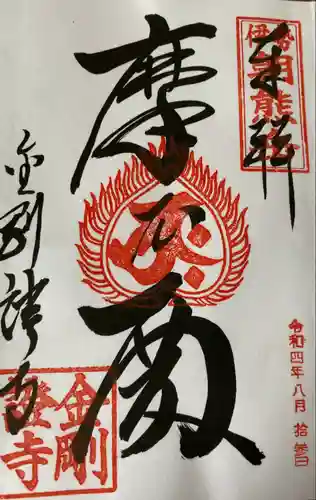 奉拝
伊勢
朝熊岳
令和四年八月拾参日
摩尼殿
金剛證寺
金剛
證寺